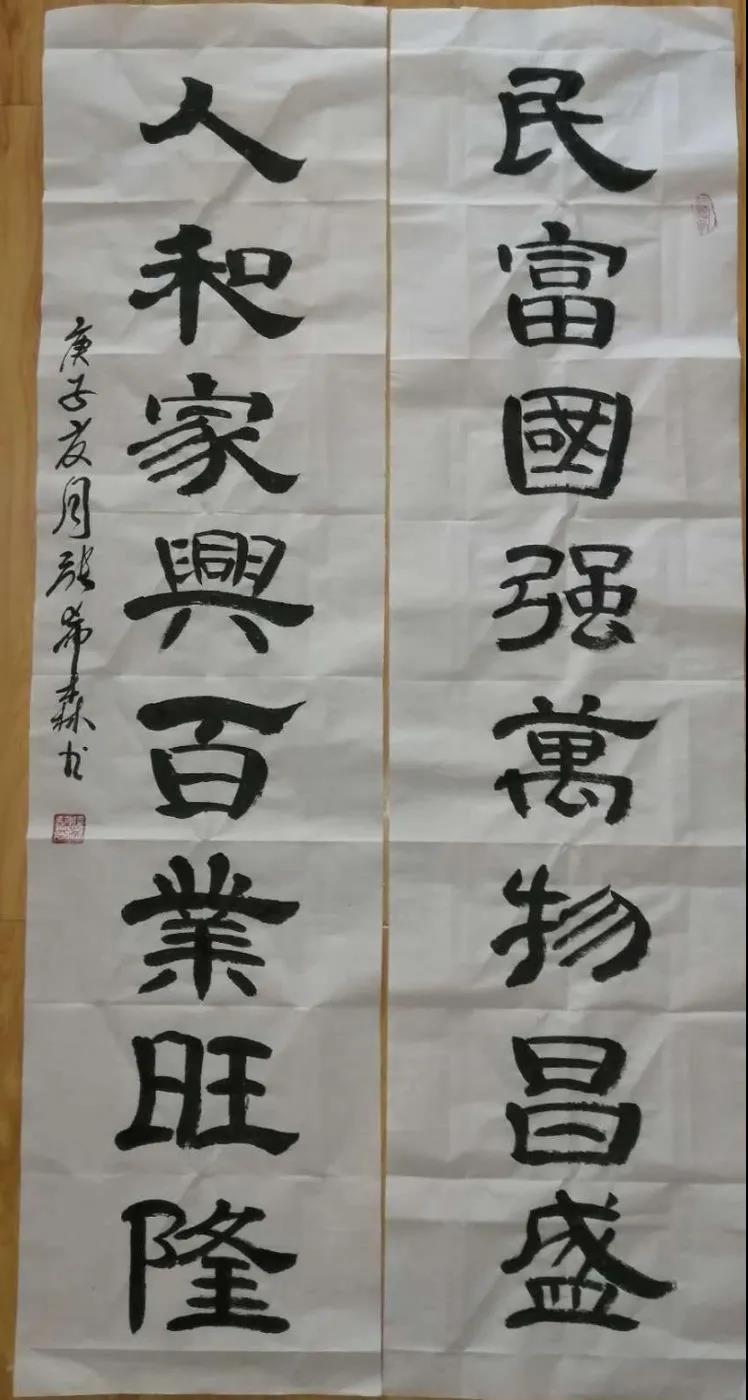 民富國强萬物昌盛
人和家興百業旺隆
庚子夏月張希森书